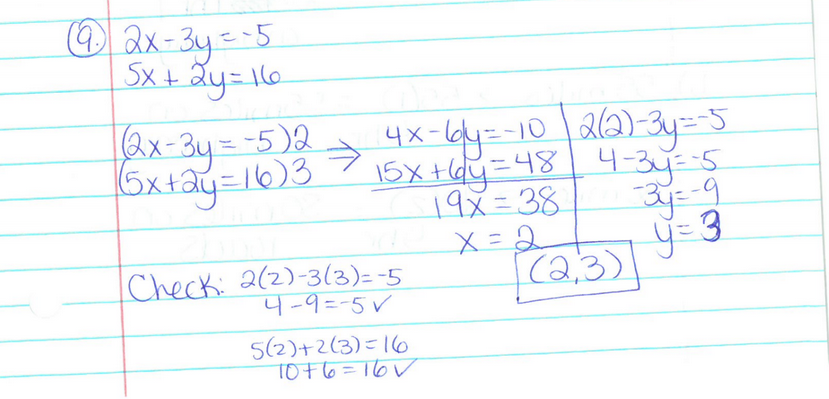 9. 2x-3y=-5
5x+2y=16
(2x-3y=-5)2 → 4x-6y=-10
(5x+2y=16)3 15x+6y=48
19x=38
x=2
2(2)-3y=-5
4-3y=-5
-3y=-9
y=3
(2,3)
Check: 2(2)-3(3)=-5
4-9=-5✓
5(2)+2(3)=16
10+6=16✓